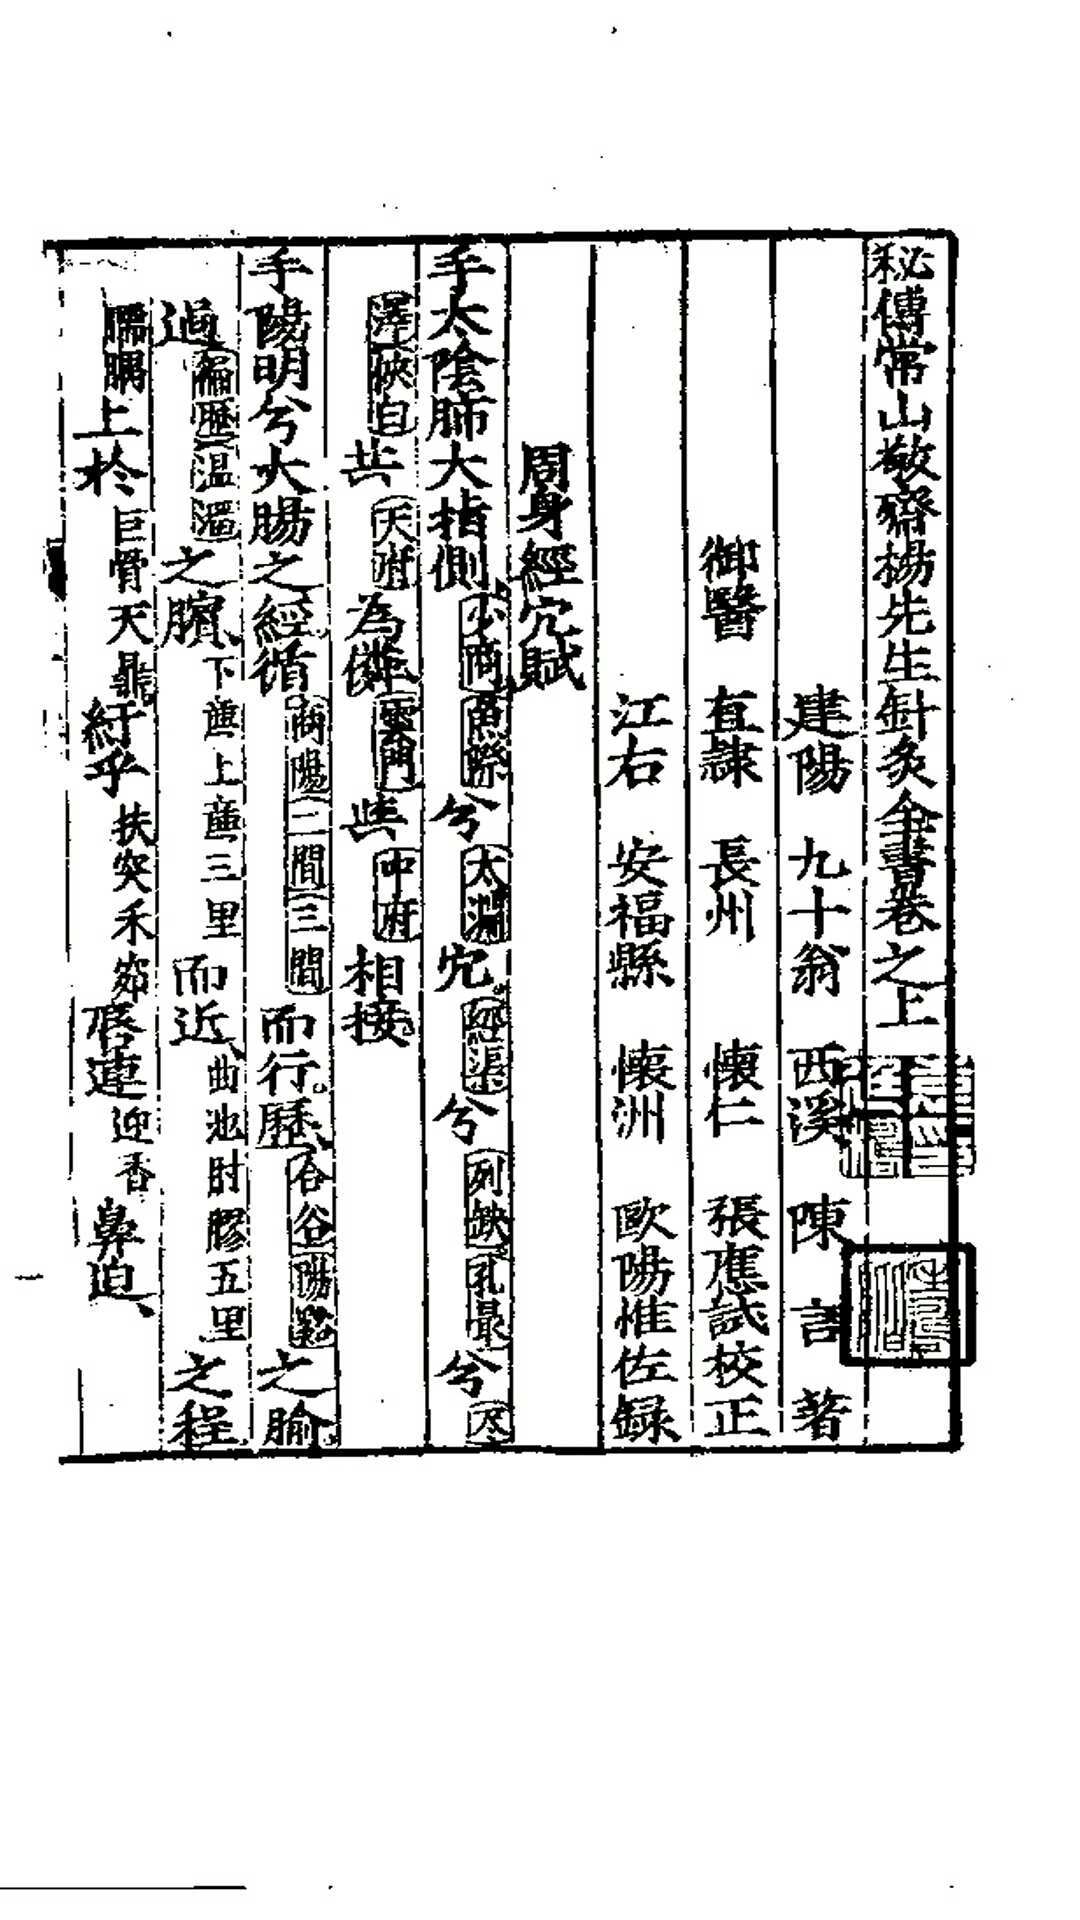 秘傳常山敬齋楊先生針灸全書卷之上
建陽 九十翁 西溪 陳 言 著
御醫 直隸 長州 懷仁 張應試校正
江右 安福縣 懷洲 歐陽惟佐録
周身經穴賦
手太陰肺大指側少商魚際兮太淵穴經渠兮列缺孔最兮尺
澤俠白共天府為鄰雲門與中府相接
手陽明兮大腸之經循商陽二間三間而行歷合谷陽谿之腧
過偏歷温溜之臏下亷上亷三里而近曲池肘膠五里之程
臑髃上於巨骨天鼎紆乎扶突禾窌唇連迎香鼻迫